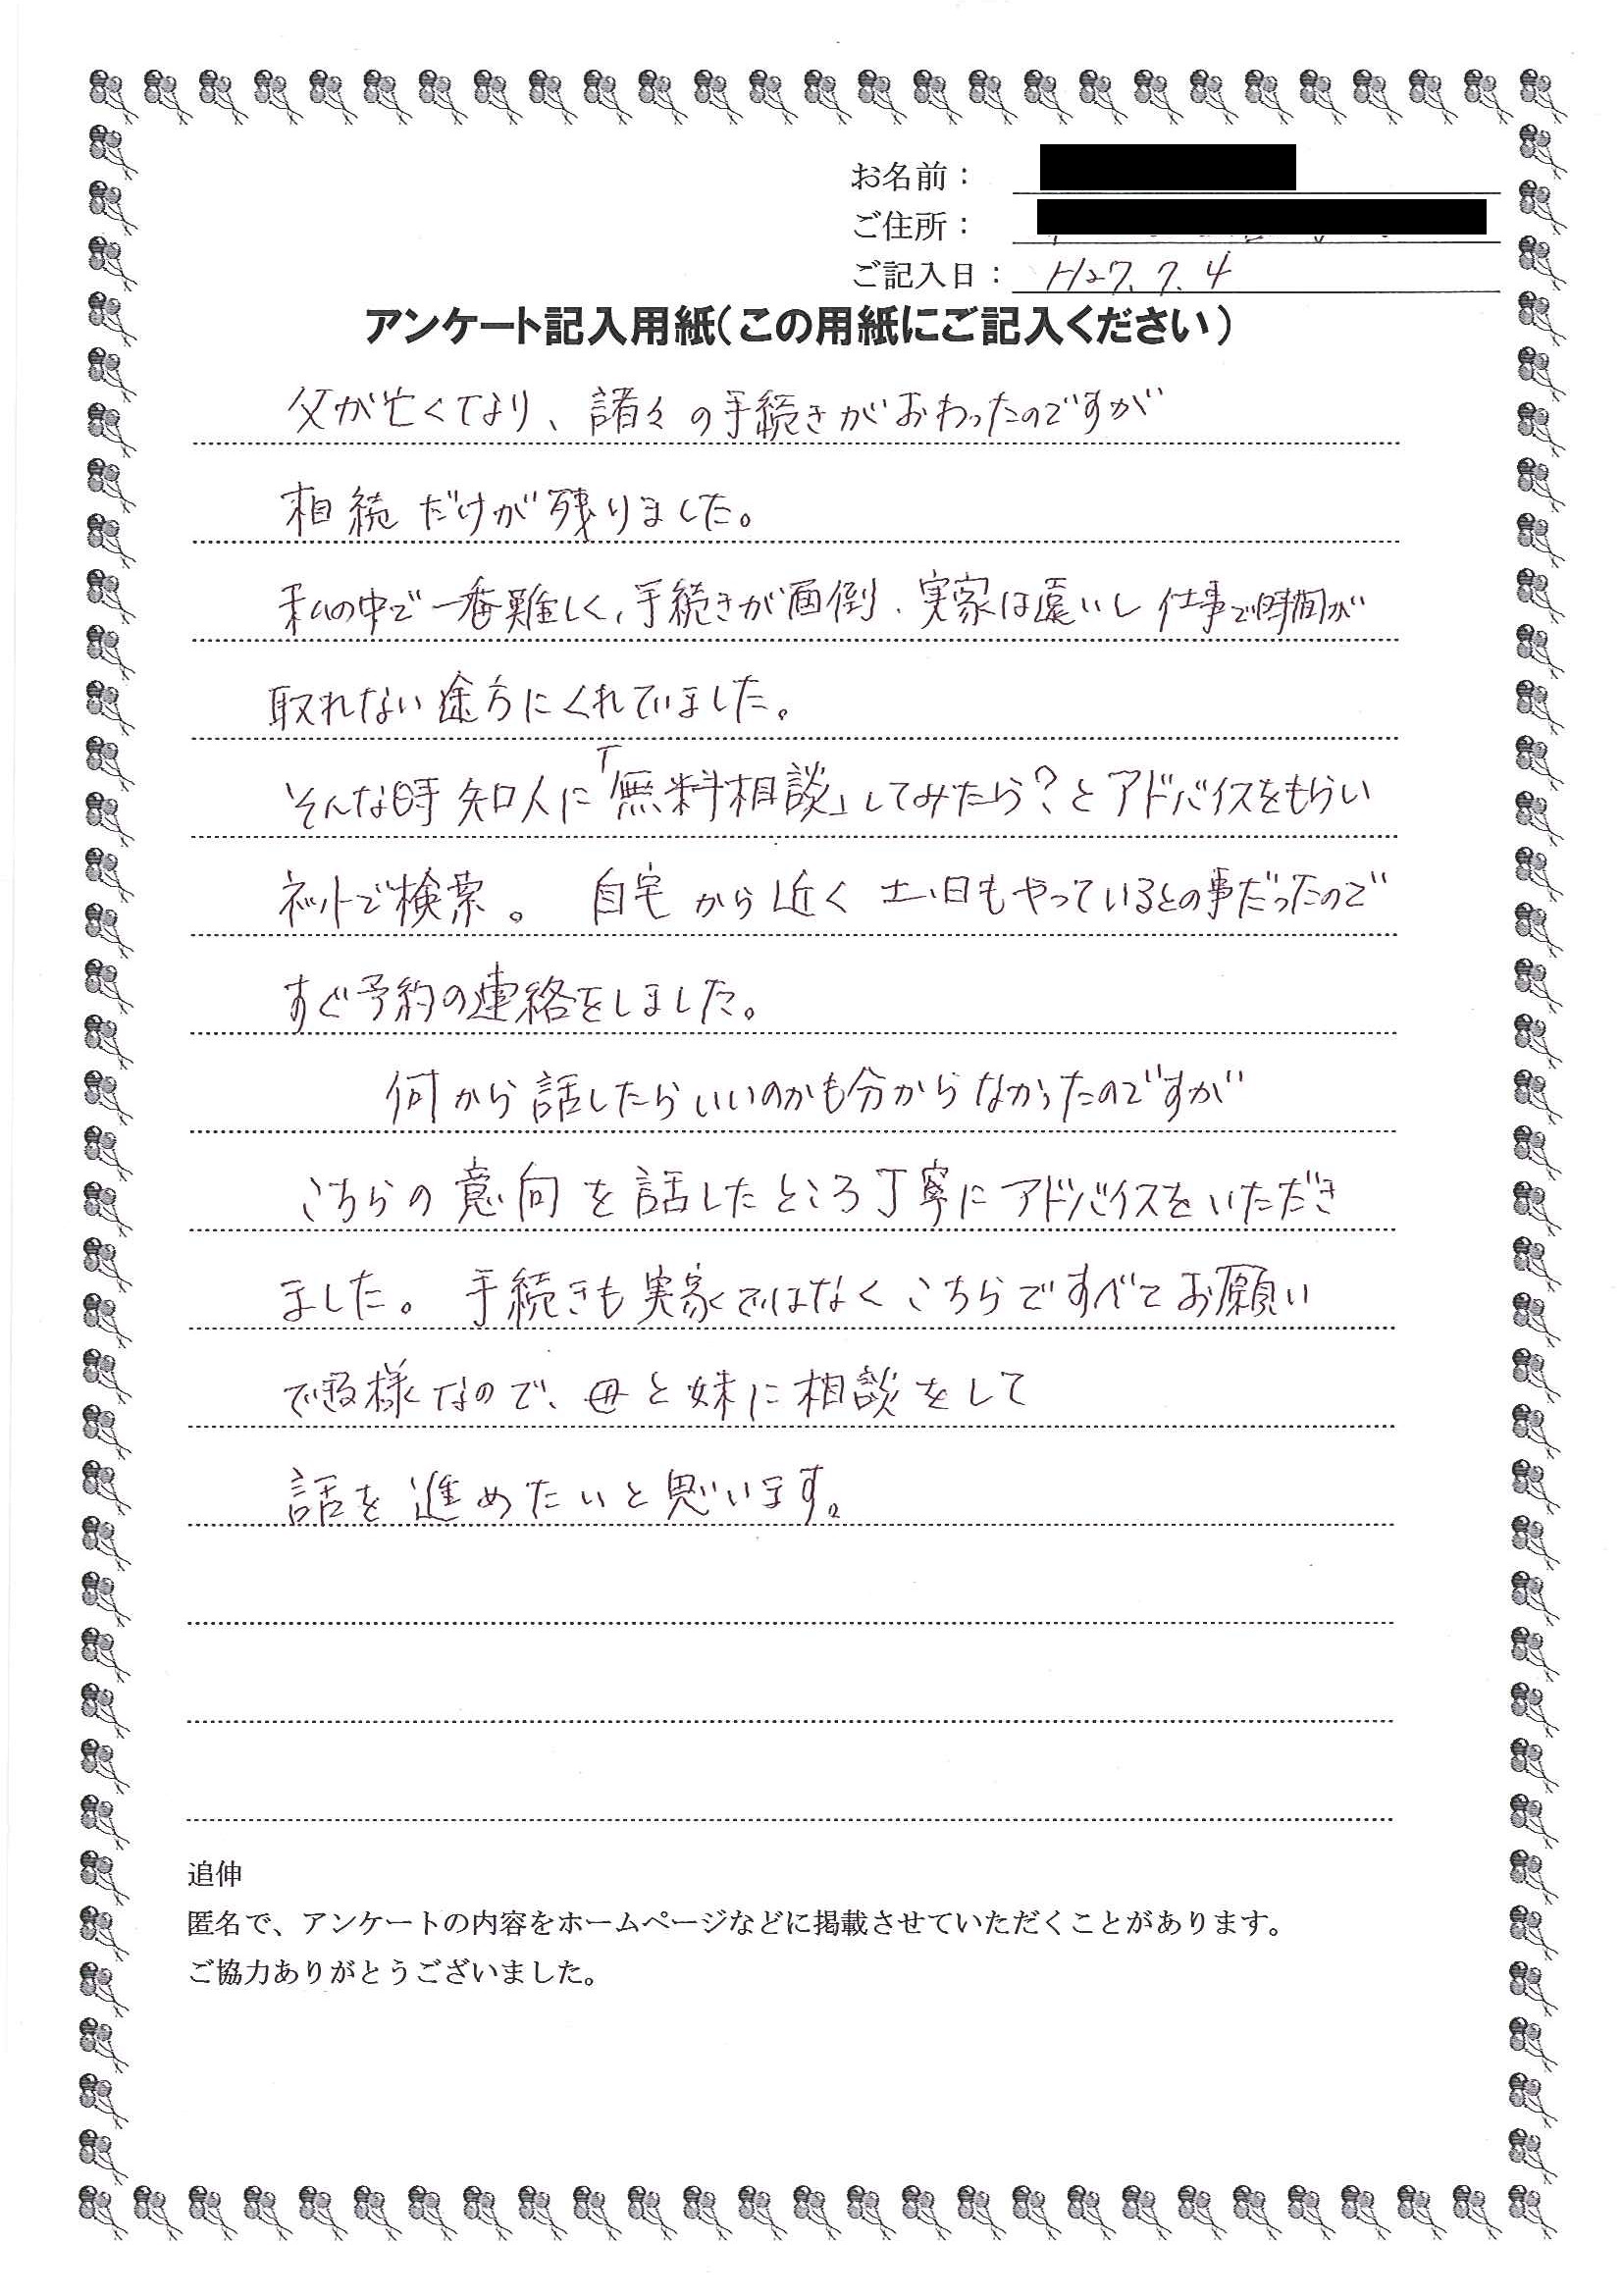 お名前：
ご住所：
ご記入日： H27.7.4
アンケート記入用紙（この用紙にご記入ください）
父が亡くてなり、諸々の手続きがおわったのですが
相続だけが残りました。
私の中で一番難しく、手続きが面倒、実家は遠いし仕事で時間が
取れない途方にくれていました。
そんな時知人に「無料相談」してみたら？とアドバイスをもらい
ネットで検索。 自宅から近く土日もやっているとの事だったので
すぐ予約の連絡をしました。
何から話したらいいのかも分からなかったのですが
こちらの意向を話したところ丁寧にアドバイスをいただき
ました。 手続きも実家ではなくこちらですべてお願い
で出る様なので、母と妹に相談をして
話を進めたいと思います。
追伸
匿名で、アンケートの内容をホームページなどに掲載させていただくことがあります。
ご協力ありがとうございました。